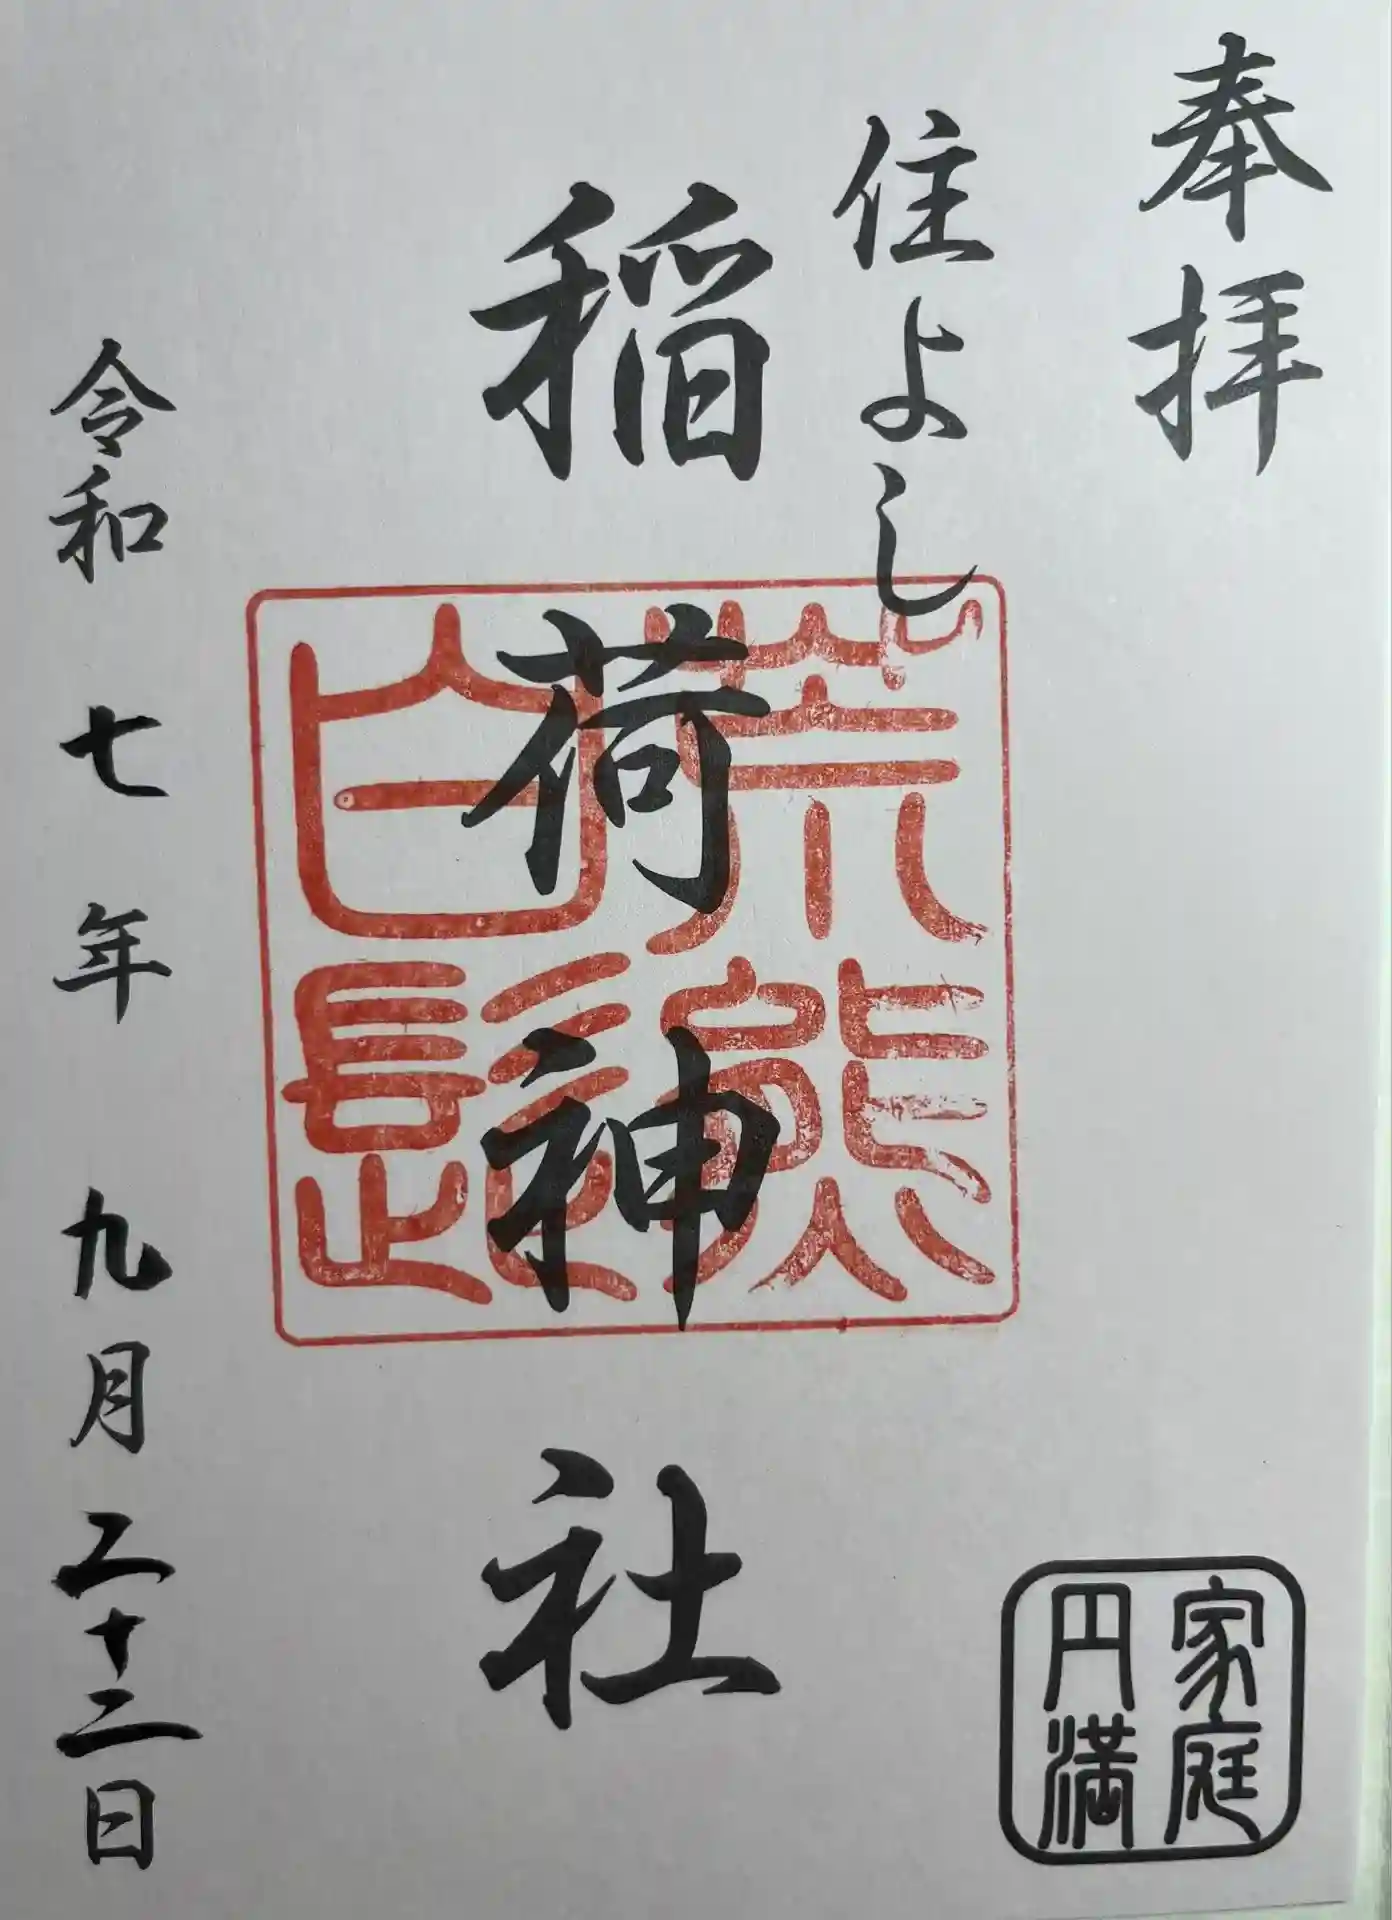 奉拝
住よし
稲荷神社
荒熊
白髭
令和七年九月二十二日
家庭
円満